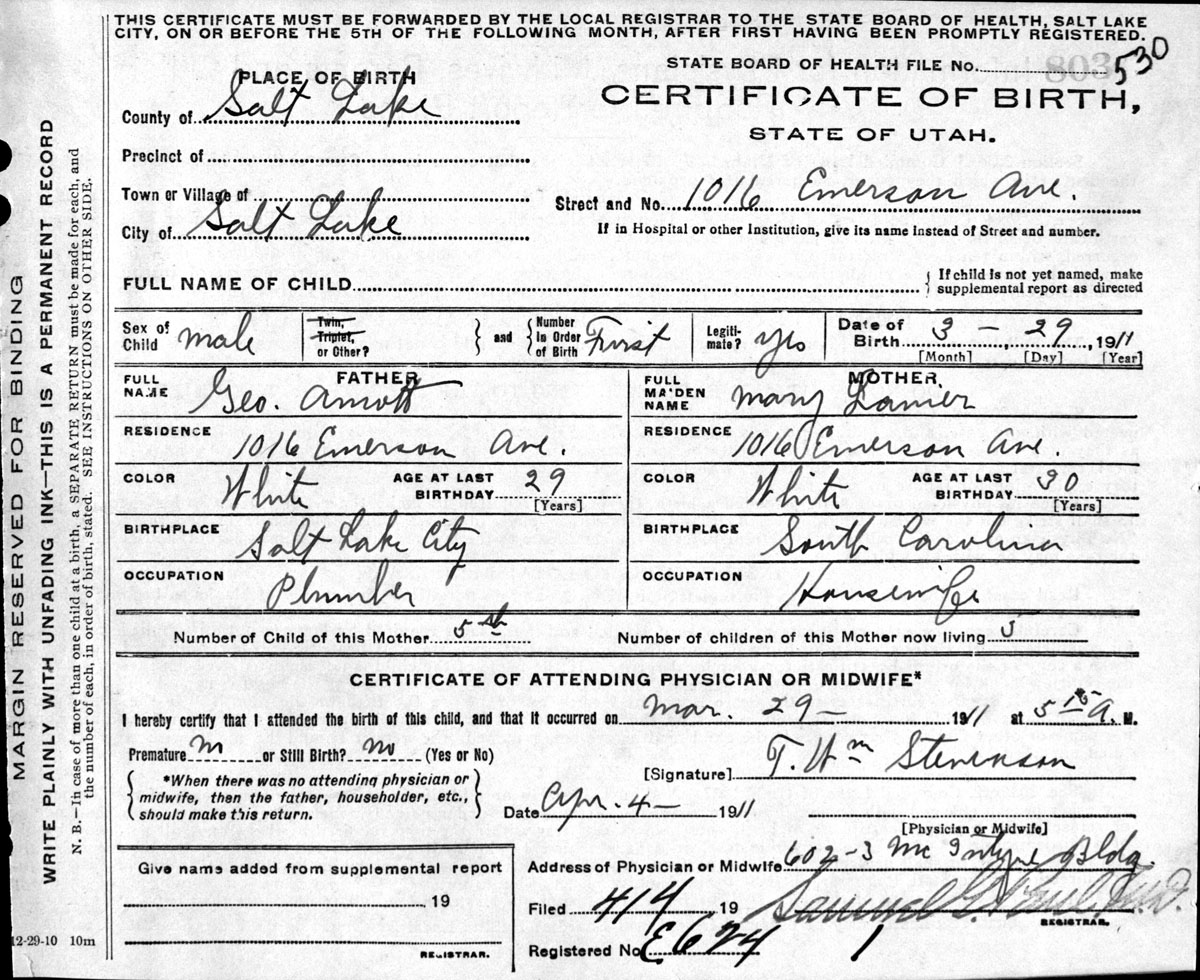 THIS CERTIFICATE MUST BE FORWARDED BY THE LOCAL REGISTRAR TO THE STATE BOARD OF HEALTH, SALT LAKE
CITY, ON OR BEFORE THE 5TH OF THE FOLLOWING MONTH, AFTER FIRST HAVING BEEN PROMPTLY REGISTERED.
STATE BOARD OF HEALTH FILE No. 803 530
PLACE OF BIRTH
CERTIFICATE OF BIRTH,
STATE OF UTAH.
County of Salt Lake
Precinct of
Town or Village of
City of Salt Lake
Street and No. 1016 Emerson Ave.
If in Hospital or other Institution, give its name instead of Street and number.
FULL NAME OF CHILD
If child is not yet named, make
supplemental report as directed
Sex of Child male
Twin, Triplet, or Other? and Number In Order of Birth First
Legiti-mate? yes
Date of Birth 3 - 29, 1911
[Month] [Day] [Year]
FATHER
FULL NAME Geo. Arnott
RESIDENCE 1016 Emerson Ave.
COLOR White AGE AT LAST BIRTHDAY 29 [Years]
BIRTHPLACE Salt Lake City
OCCUPATION Plumber
MOTHER,
FULL MAIDEN NAME Mary Lanier
RESIDENCE 1016 Emerson Ave.
COLOR White AGE AT LAST BIRTHDAY 30 [Years]
BIRTHPLACE South Carolina
OCCUPATION Housewife
Number of Child of this Mother 5th Number of children of this Mother now living 5
CERTIFICATE OF ATTENDING PHYSICIAN OR MIDWIFE*
I hereby certify that I attended the birth of this child, and that it occurred on Mar. 29 - 1911 at 5 15 A. M.
Premature no or Still Birth? no (Yes or No)
*When there was no attending physician or
midwife, then the father, householder, etc.,
should make this return.
[Signature] T. Wm Stevenson
Date Apr. 4 - 1911
[Physician or Midwife]
Address of Physician or Midwife 602-3 McIntyre Bldg.
Give name added from supplemental report
19
REGISTRAR.
Filed 4/4 19
Samuel G. Paul, M.D.
REGISTRAR.
Registered No. E624 1
MARGIN RESERVED FOR BINDING
WRITE PLAINLY WITH UNFADING INK—THIS IS A PERMANENT RECORD
N. B.—In case of more than one child at a birth, a SEPARATE RETURN must be made for each, and
the number of each, in order of birth, stated. SEE INSTRUCTIONS ON OTHER SIDE.
12-29-10 10m